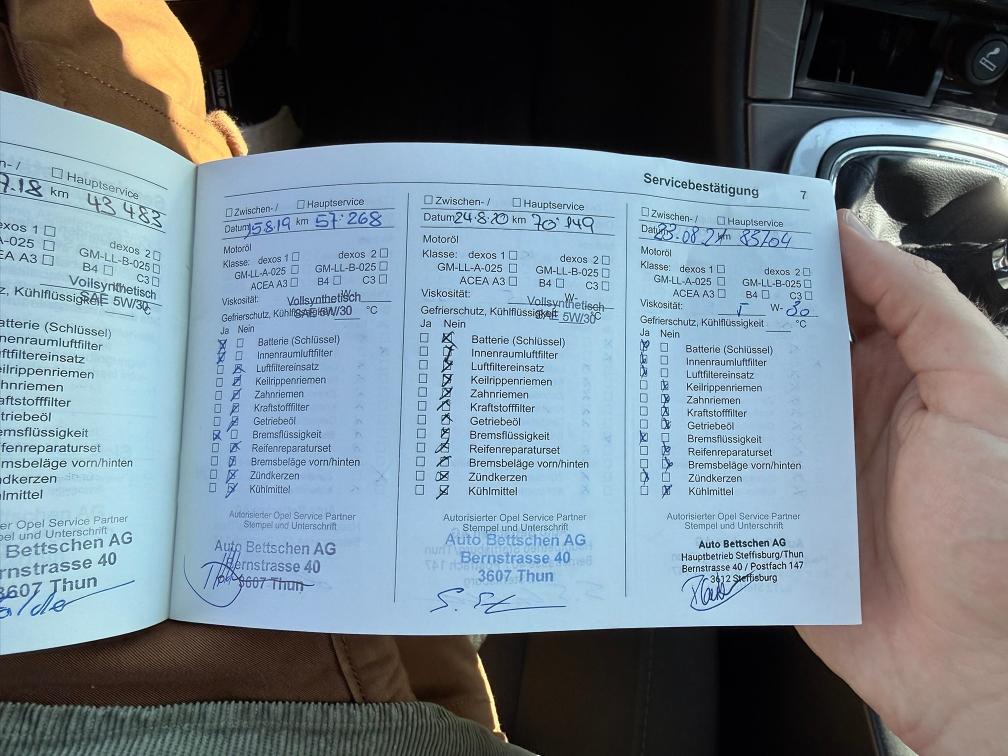 Servicebestätigung 7
n- / ☐ Hauptservice
7.18 km 43 483
exos 1 ☐ dexos 2 ☐
A-025 ☐ GM-LL-B-025 ☐
EA A3 ☐ B4 ☐ C3 ☐
Vollsynthetisch
SAE 5W/30
z, Kühlflüssigkeit
atterie (Schlüssel)
nenraumluftfilter
uftfiltereinsatz
eilrippenriemen
ahnriemen
aftstofffilter
etriebeöl
emsflüssigkeit
ifenreparaturset
msbeläge vorn/hinten
ndkerzen
hlmittel
er Opel Service Partner
Stempel und Unterschrift
Bettschen AG
ernstrasse 40
3607 Thun
☐ Zwischen- / ☐ Hauptservice
Datum 15.8.19 km 57'268
Motoröl
Klasse: dexos 1 ☐ dexos 2 ☐
GM-LL-A-025 ☐ GM-LL-B-025 ☐
ACEA A3 ☐ B4 ☐ C3 ☐
Viskosität: Vollsynthetisch
SAE 5W/30
Gefrierschutz, Kühlflüssigkeit °C
Ja Nein
☒ ☐ Batterie (Schlüssel)
☒ ☐ Innenraumluftfilter
☐ ☒ Luftfiltereinsatz
☐ ☒ Keilrippenriemen
☐ ☒ Zahnriemen
☐ ☒ Kraftstofffilter
☐ ☒ Getriebeöl
☒ ☐ Bremsflüssigkeit
☐ ☒ Reifenreparaturset
☐ ☒ Bremsbeläge vorn/hinten
☐ ☒ Zündkerzen
☐ ☒ Kühlmittel
Autorisierter Opel Service Partner
Stempel und Unterschrift
Auto Bettschen AG
Bernstrasse 40
3607 Thun
☐ Zwischen- / ☐ Hauptservice
Datum 24.8.20 km 70'149
Motoröl
Klasse: dexos 1 ☐ dexos 2 ☐
GM-LL-A-025 ☐ GM-LL-B-025 ☐
ACEA A3 ☐ B4 ☐ C3 ☐
Viskosität: W-
Vollsynthetisch
SAE 5W/30
Gefrierschutz, Kühlflüssigkeit °C
Ja Nein
☐ ☒ Batterie (Schlüssel)
☐ ☒ Innenraumluftfilter
☐ ☒ Luftfiltereinsatz
☐ ☒ Keilrippenriemen
☐ ☒ Zahnriemen
☐ ☒ Kraftstofffilter
☐ ☒ Getriebeöl
☐ ☒ Bremsflüssigkeit
☐ ☒ Reifenreparaturset
☐ ☒ Bremsbeläge vorn/hinten
☐ ☒ Zündkerzen
☐ ☒ Kühlmittel
Autorisierter Opel Service Partner
Stempel und Unterschrift
Auto Bettschen AG
Bernstrasse 40
3607 Thun
☐ Zwischen- / ☐ Hauptservice
Datum 23.08.21 km 83104
Motoröl
Klasse: dexos 1 ☐ dexos 2 ☐
GM-LL-A-025 ☐ GM-LL-B-025 ☐
ACEA A3 ☐ B4 ☐ C3 ☐
Viskosität: 5 W- 30
Gefrierschutz, Kühlflüssigkeit °C
Ja Nein
☒ ☐ Batterie (Schlüssel)
☒ ☐ Innenraumluftfilter
☒ ☐ Luftfiltereinsatz
☐ ☒ Keilrippenriemen
☐ ☒ Zahnriemen
☐ ☒ Kraftstofffilter
☐ ☒ Getriebeöl
☒ ☐ Bremsflüssigkeit
☐ ☒ Reifenreparaturset
☐ ☒ Bremsbeläge vorn/hinten
☒ ☐ Zündkerzen
☐ ☒ Kühlmittel
Autorisierter Opel Service Partner
Stempel und Unterschrift
Auto Bettschen AG
Hauptbetrieb Steffisburg/Thun
Bernstrasse 40 / Postfach 147
3612 Steffisburg